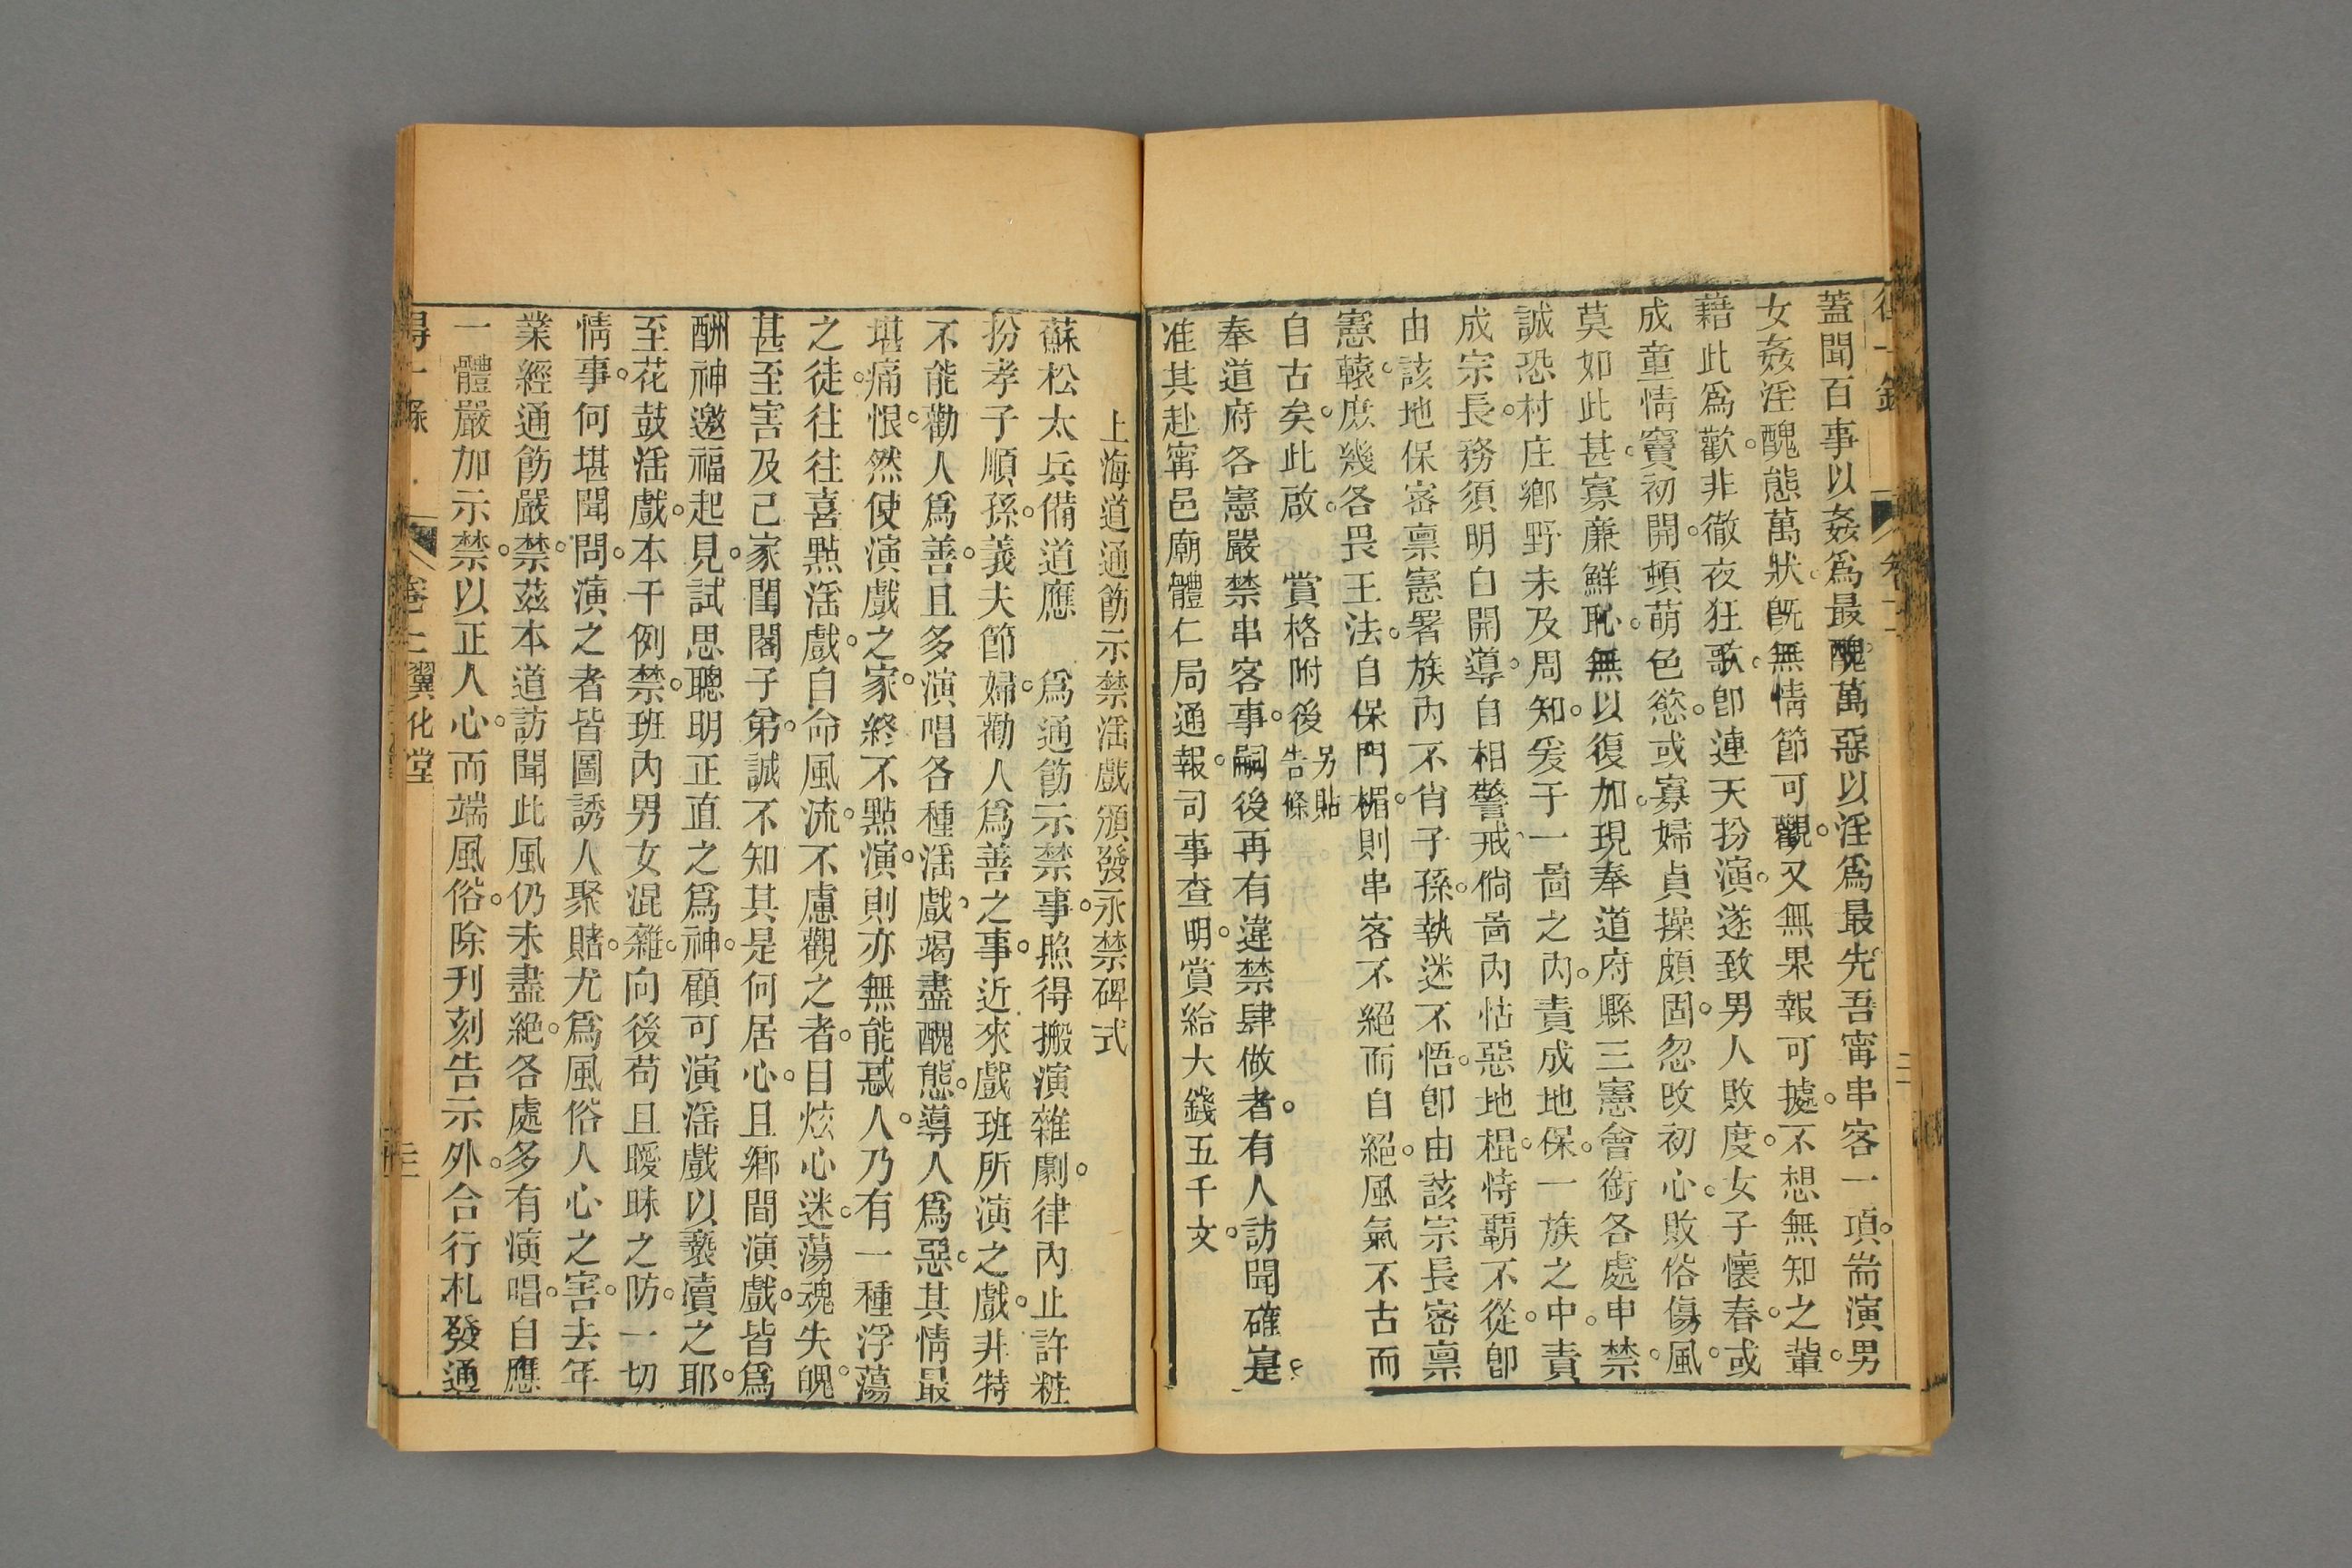 蓋聞百事以姦爲最醜。萬惡以淫爲最先。吾甯串客一項。耑演男
女姦淫。醜態萬狀。旣無情節可觀。又無果報可據。不想無知之輩。
藉此爲歡。非徹夜狂歌。卽連天扮演。遂致男人敗度。女子懷春。或
成童情竇初開。頓萌色慾。或寡婦貞操頗固。忽改初心。敗俗傷風。
莫如此甚。寡亷鮮恥。無以復加。現奉道府縣三憲會銜各處申禁。
誠恐村庄鄉野未及周知。爰于一啚之內。責成地保。一族之中。責
成宗長。務須明白開導。自相警戒。倘啚內怙惡地棍。恃覇不從。卽
由該地保密禀憲署。族內不肖子孫。執迷不悟。卽由該宗長密禀
憲轅。庶幾各畏王法。自保門楣。則串客不絕而自絕。風氣不古而
自古矣。此啟。 賞格附後 另貼告條
奉道府各憲嚴禁串客事。嗣後再有違禁肆做者。有人訪聞確寔。
准其赴甯邑廟體仁局通報。司事查明。賞給大錢五千文。
上海道通飭示禁淫戲頒發永禁碑式
蘇松太兵備道應 爲通飭示禁事。照得搬演雜劇。律內止許粧
扮孝子順孫。義夫節婦。勸人爲善之事。近來戲班所演之戲。非特
不能勸人爲善。且多演唱各種淫戲。竭盡醜態。導人爲惡。其情最
堪痛恨。然使演戲之家。終不點演。則亦無能惑人。乃有一種浮蕩
之徒。往往喜點淫戲。自命風流。不慮觀之者。目炫心迷。蕩魂失魄。
甚至害及己家閨閣子弟。誠不知其是何居心。且鄉間演戲。皆爲
酬神邀福起見。試思聰明正直之爲神。顧可演淫戲以褻瀆之耶。
至花鼓淫戲。本干例禁。班內男女混雜。向後苟且曖昧之防。一切
情事。何堪聞問。演之者皆圖誘人聚賭。尤爲風俗人心之害。去年
業經通飭嚴禁。茲本道訪聞此風仍未盡絕。各處多有演唱。自應
一體嚴加示禁。以正人心。而端風俗。除刋刻告示外。合行札發通
得一錄 卷 翼化堂